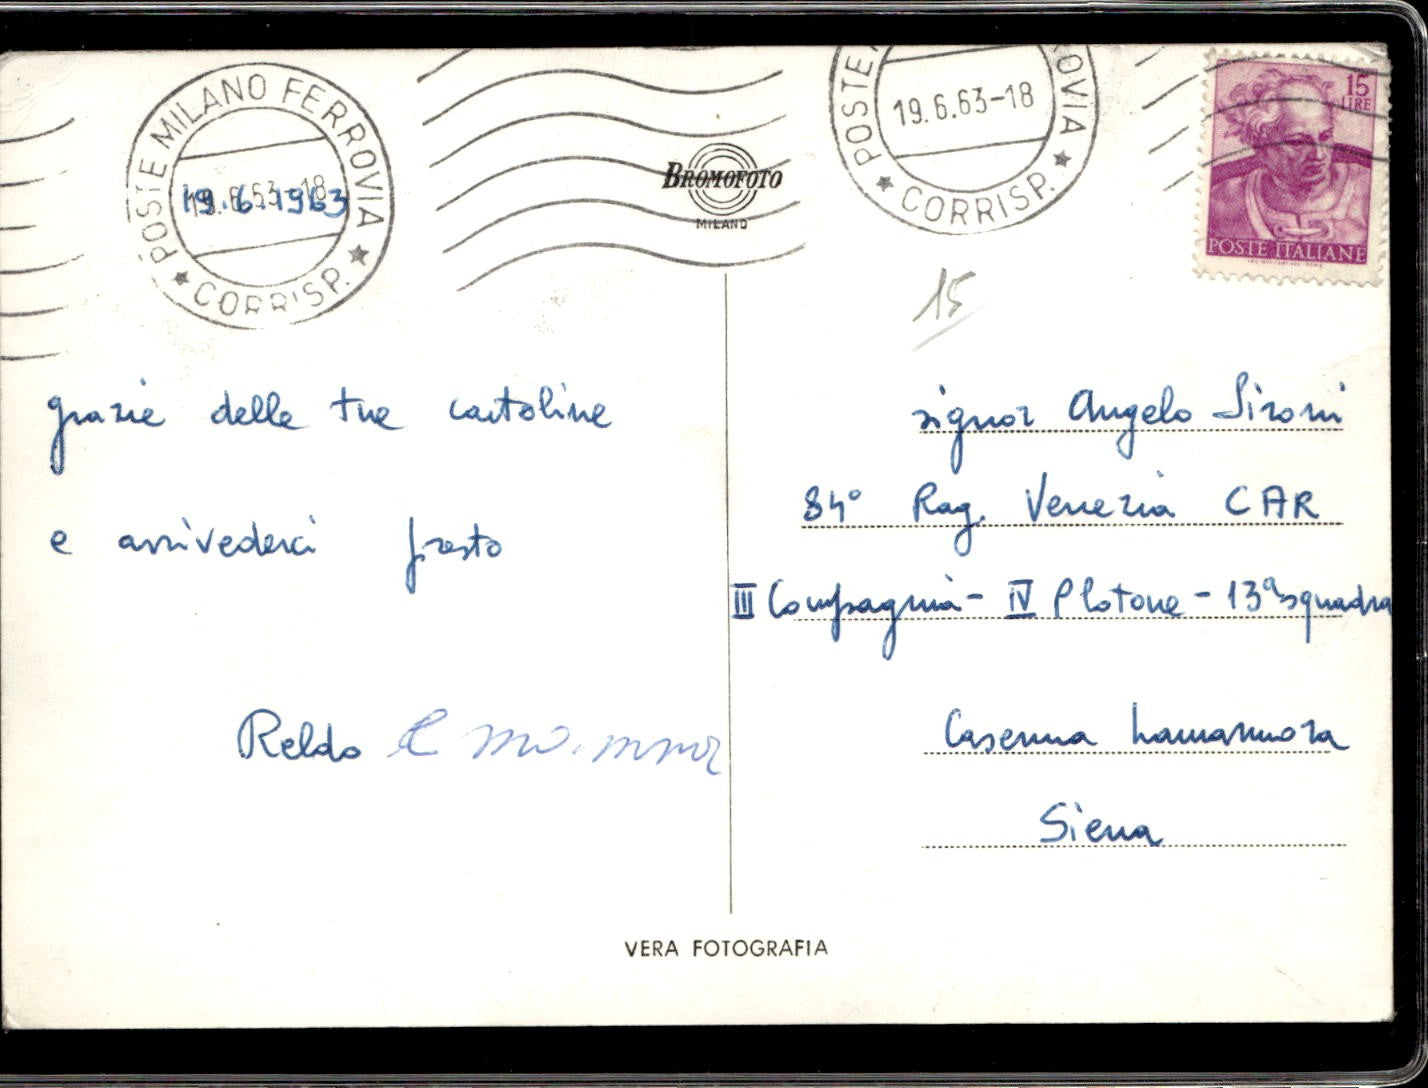 POSTE MILANO FERROVIA
19.6.63-18
19.6.1963
★ CORRISP. ★
BROMOFOTO
MILANO
POSTE
OVIA
19.6.63-18
★ CORRISP. ★
15
LIRE
POSTE ITALIANE
15
grazie delle tue cartoline
e arrivederci presto
Reldo e
signor Angelo Sironi
84° Rag. Venezia CAR
III Compagnia - IV Plotone - 13ª squadra
Caserma Lamarmora
Siena
VERA FOTOGRAFIA